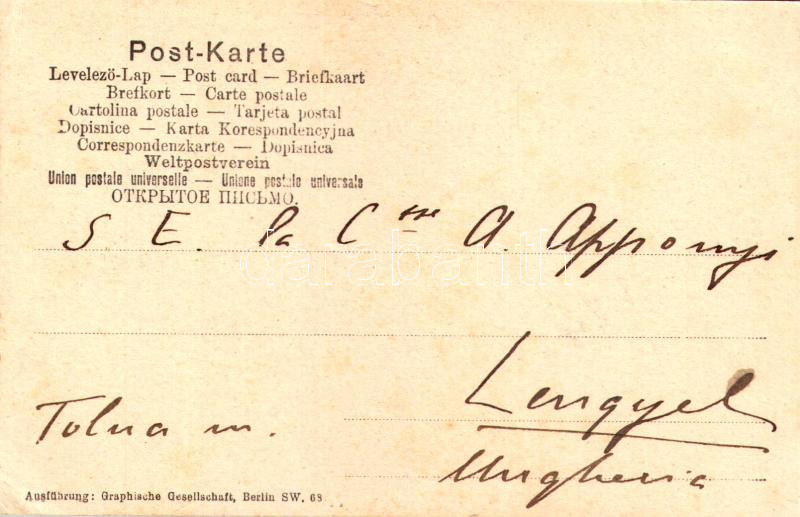 Post-Karte
Levelezö-Lap — Post card — Briefkaart
Brefkort — Carte postale
Cartolina postale — Tarjeta postal
Dopisnice — Karta Korespondencyjna
Correspondenzkarte — Dopisnica
Weltpostverein
Union postale universelle — Unione postale universale
ОТКРЫТОЕ ПИСЬМО.
S E. la C sse A. Apponyi
Lengyel
Tolna m.
Ungheria
Ausführung: Graphische Gesellschaft, Berlin SW. 68
darabanth